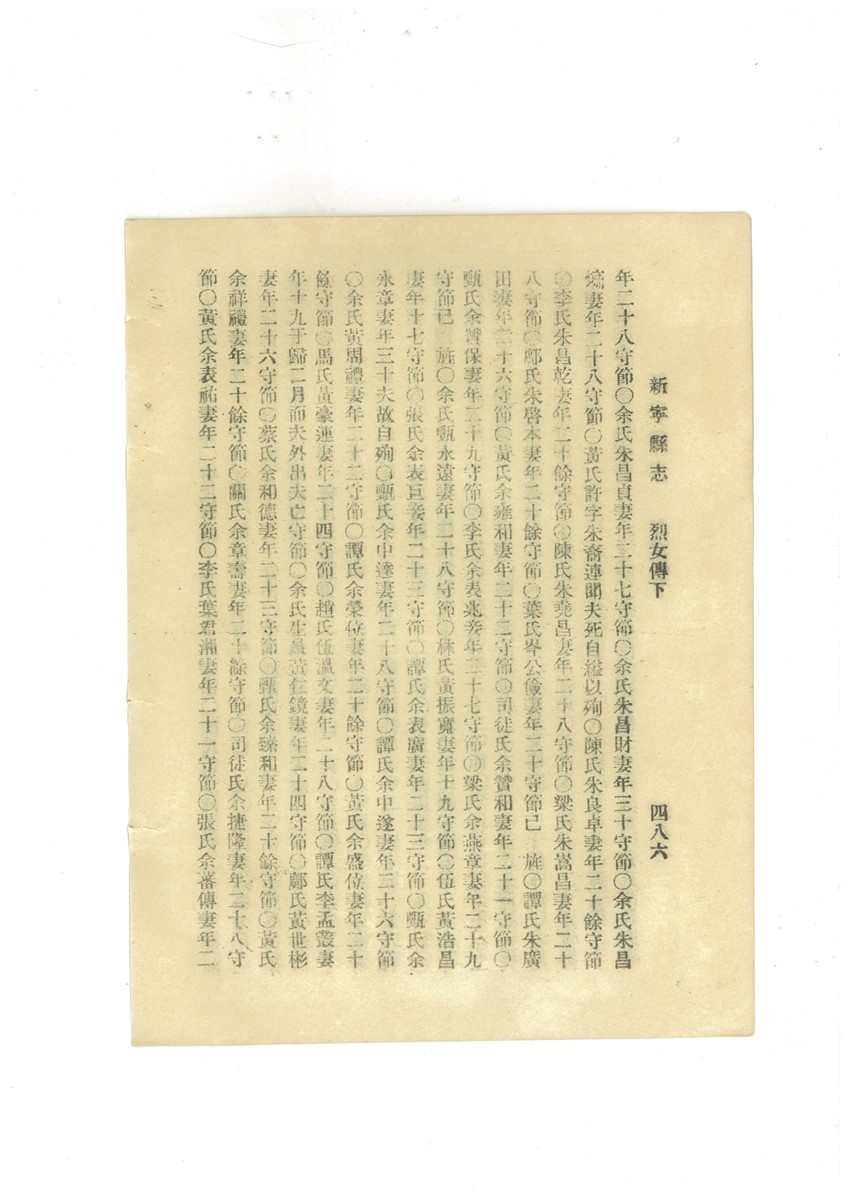 新寧縣志 烈女傳下 四八六
年二十八守節〇余氏朱昌貞妻年二十七守節〇余氏朱昌財妻年三十守節〇余氏朱昌
妻年二十八守節〇黃氏許字朱裔連聞夫死自縊以殉〇陳氏朱良卓妻年二十餘守節
〇李氏朱昌乾妻年二十餘守節〇陳氏朱堯昌妻年二十八守節〇梁氏朱嵩昌妻年二十
八守節〇鄺氏朱啓本妻年二十餘守節〇葉氏岑公儉妻年二十守節已 旌〇譚氏朱廣
田妻年二十六守節〇黃氏余 和妻年二十二守節〇司徒氏余贊和妻年二十一守節〇
甄氏余贊保妻年二十九守節〇李氏余表 妾年二十七守節〇梁氏余燕章妻年二十九
守節已 旌〇余氏甄永遠妻年二十八守節〇林氏黃振寬妻年十九守節〇伍氏黃浩昌
妻年十七守節〇張氏余表巨妾年二十三守節〇譚氏余表廣妻年二十三守節〇甄氏余
永章妻年三十夫故自殉〇甄氏余中達妻年二十八守節〇譚氏余中遂妻年二十六守節
〇余氏黃周禮妻年二十二守節〇譚氏余榮位妻年二十餘守節〇黃氏余盛位妻年二十
餘守節〇馬氏黃豪連妻年二十四守節〇趙氏伍溫文妻年二十八守節〇譚氏李孟叢妻
年十九于歸二月而夫外出夫亡守節〇余氏生員黃仁鏡妻年二十四守節〇鄺氏黃世彬
妻年二十六守節〇蔡氏余和德妻年二十三守節〇甄氏余臻和妻年二十餘守節〇黃氏
余祥禮妻年二十餘守節〇關氏余章壽妻年二十餘守節〇司徒氏余捷隆妻年二十八守
節〇黃氏余表祐妻年二十二守節〇李氏葉君湘妻年二十一守節〇張氏余蕃傳妻年二